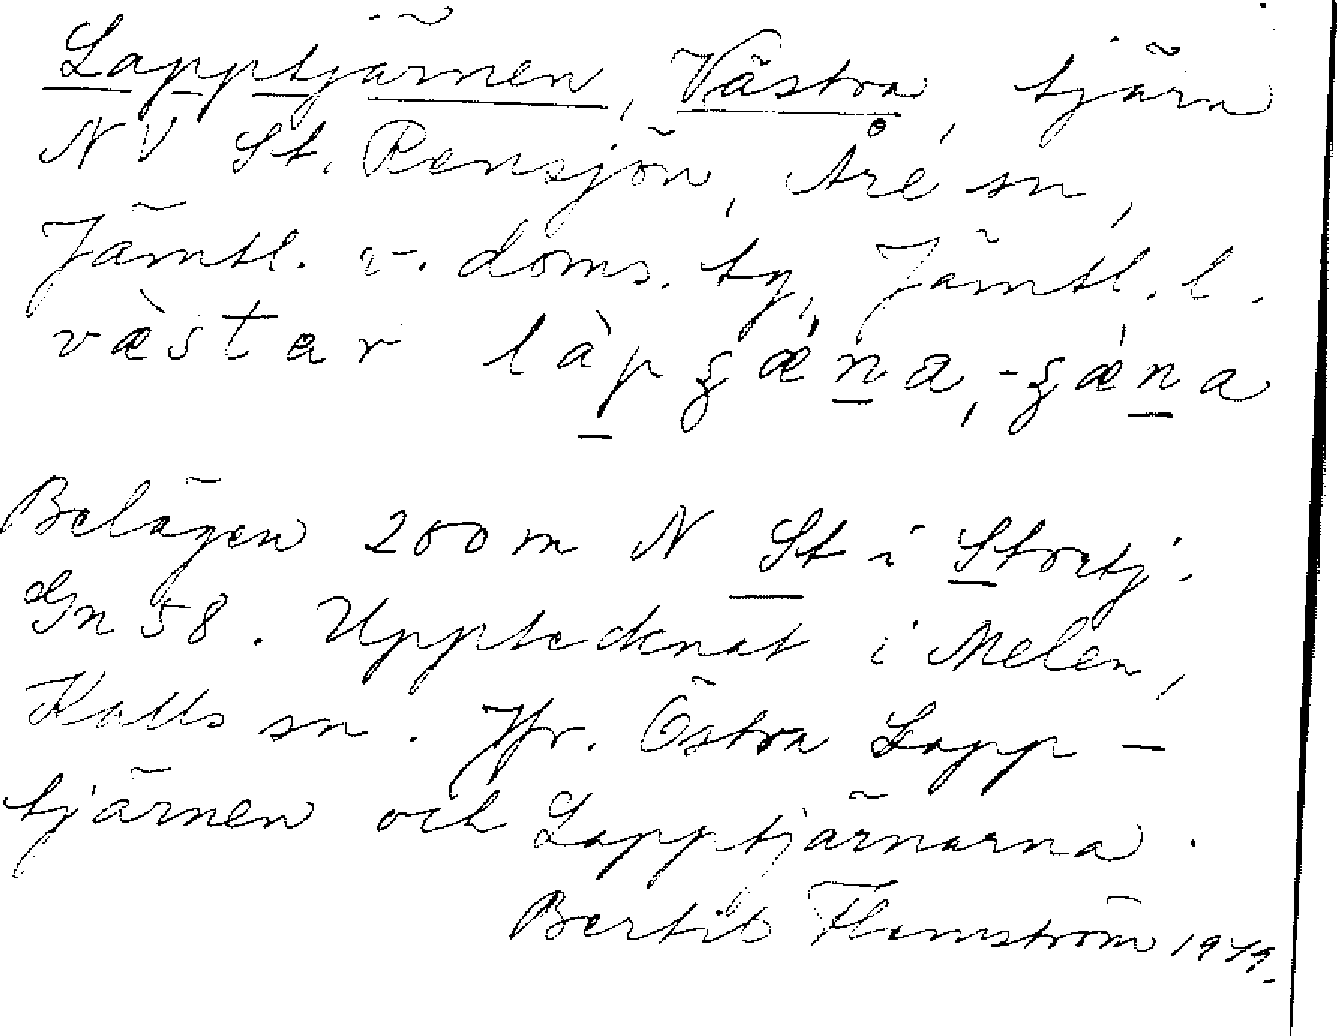 Lapptjärnen, Västra, tjärn
NV St. Rensjön, Åre sn,
Jämtl. v. doms. tg, Jämtl. l.
Belägen 200 m N St i Stortj.
Gn 58. Upptecknat i Melen,
Kalls sn. Jfr. Östra Lapp-
tjärnen och Lapptjärnarna.
Bertil Flemström 1979.